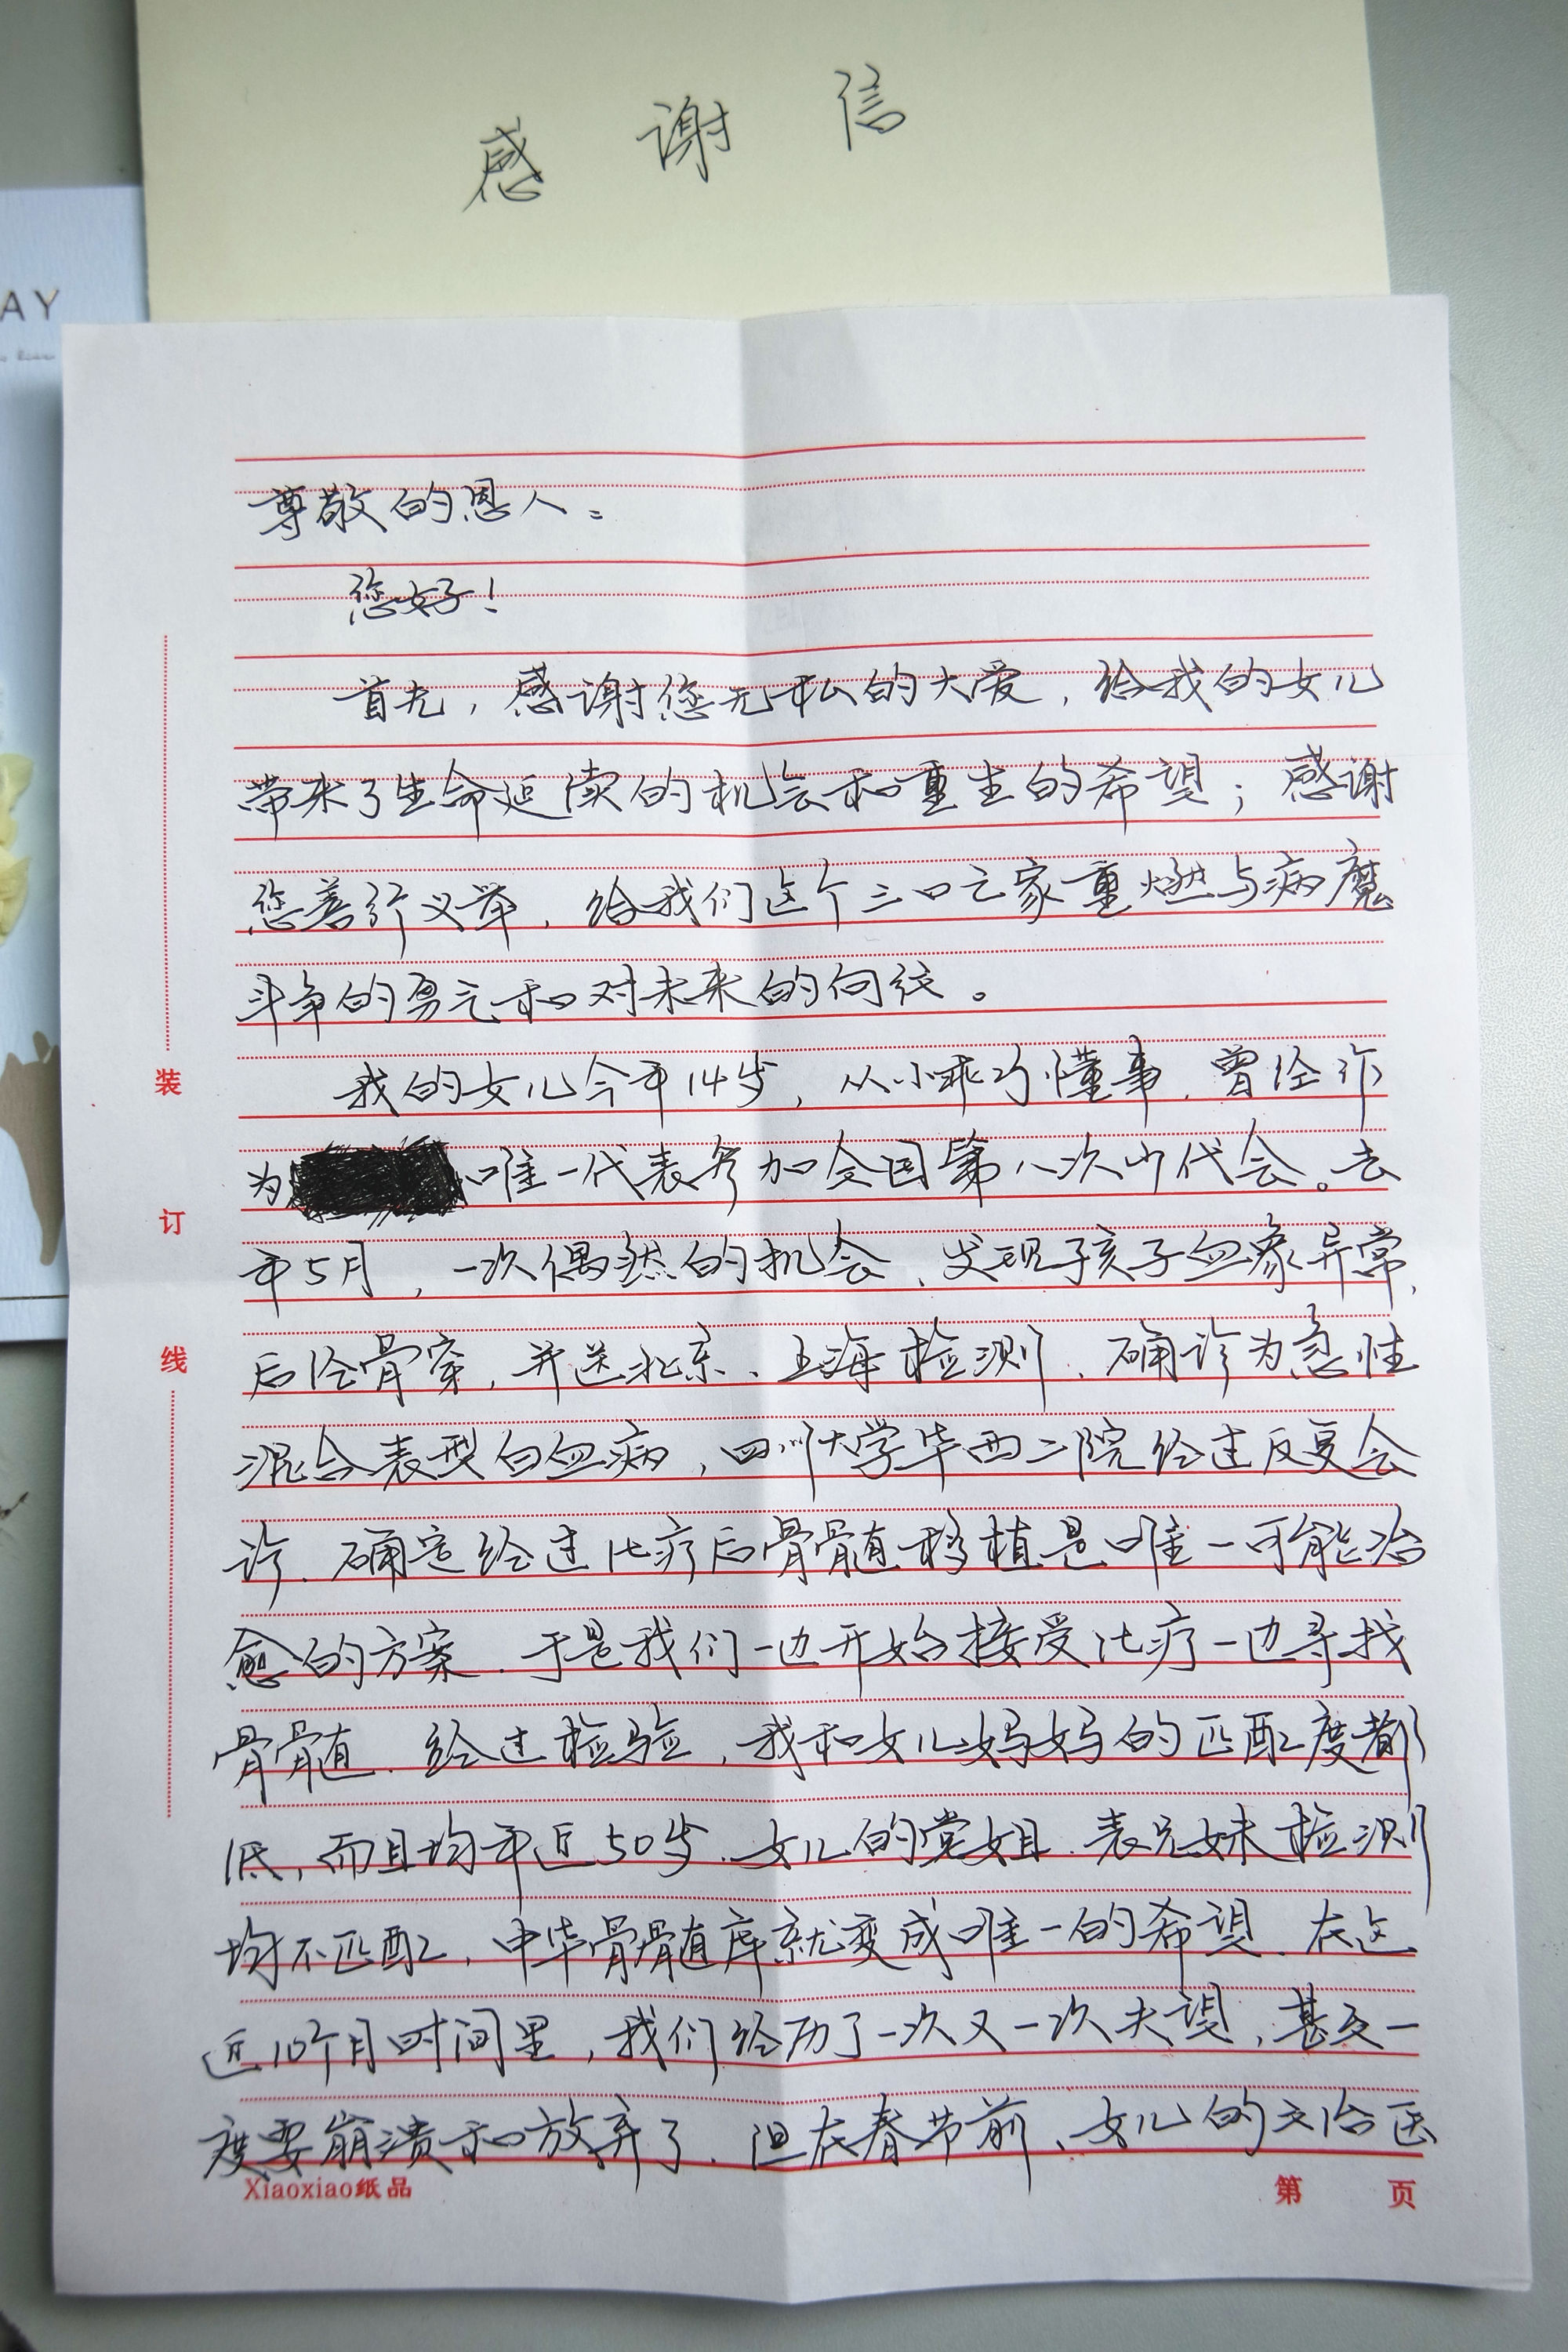 感谢信
AY
尊敬的恩人：
您好！
首先，感谢您无私的大爱，给我的女儿
带来了生命延续的机会和重生的希望；感谢
您善行义举，给我们这个三口之家重燃与病魔
斗争的勇气和对未来的向往。
我的女儿今年14岁，从小乖巧懂事，曾经作
为 唯一代表参加全国第八次少代会。去
年5月，一次偶然的机会，发现孩子血象异常，
后经骨穿，并送北京、上海检测，确诊为急性
混合表型白血病，四川大学华西二院经过反复会
诊，确定经过化疗后骨髓移植是唯一可能治
愈的方案，于是我们一边开始接受化疗一边寻找
骨髓，经过检验，我和女儿妈妈的匹配度都
低，而且均年近50岁，女儿的堂姐、表兄妹检测
均不匹配，中华骨髓库就变成唯一的希望，在这
近10个月时间里，我们经历了一次又一次失望，甚至一
度要崩溃和放弃了，但在春节前，女儿的主治医
装
订
线
Xiaoxiao纸品
第 页